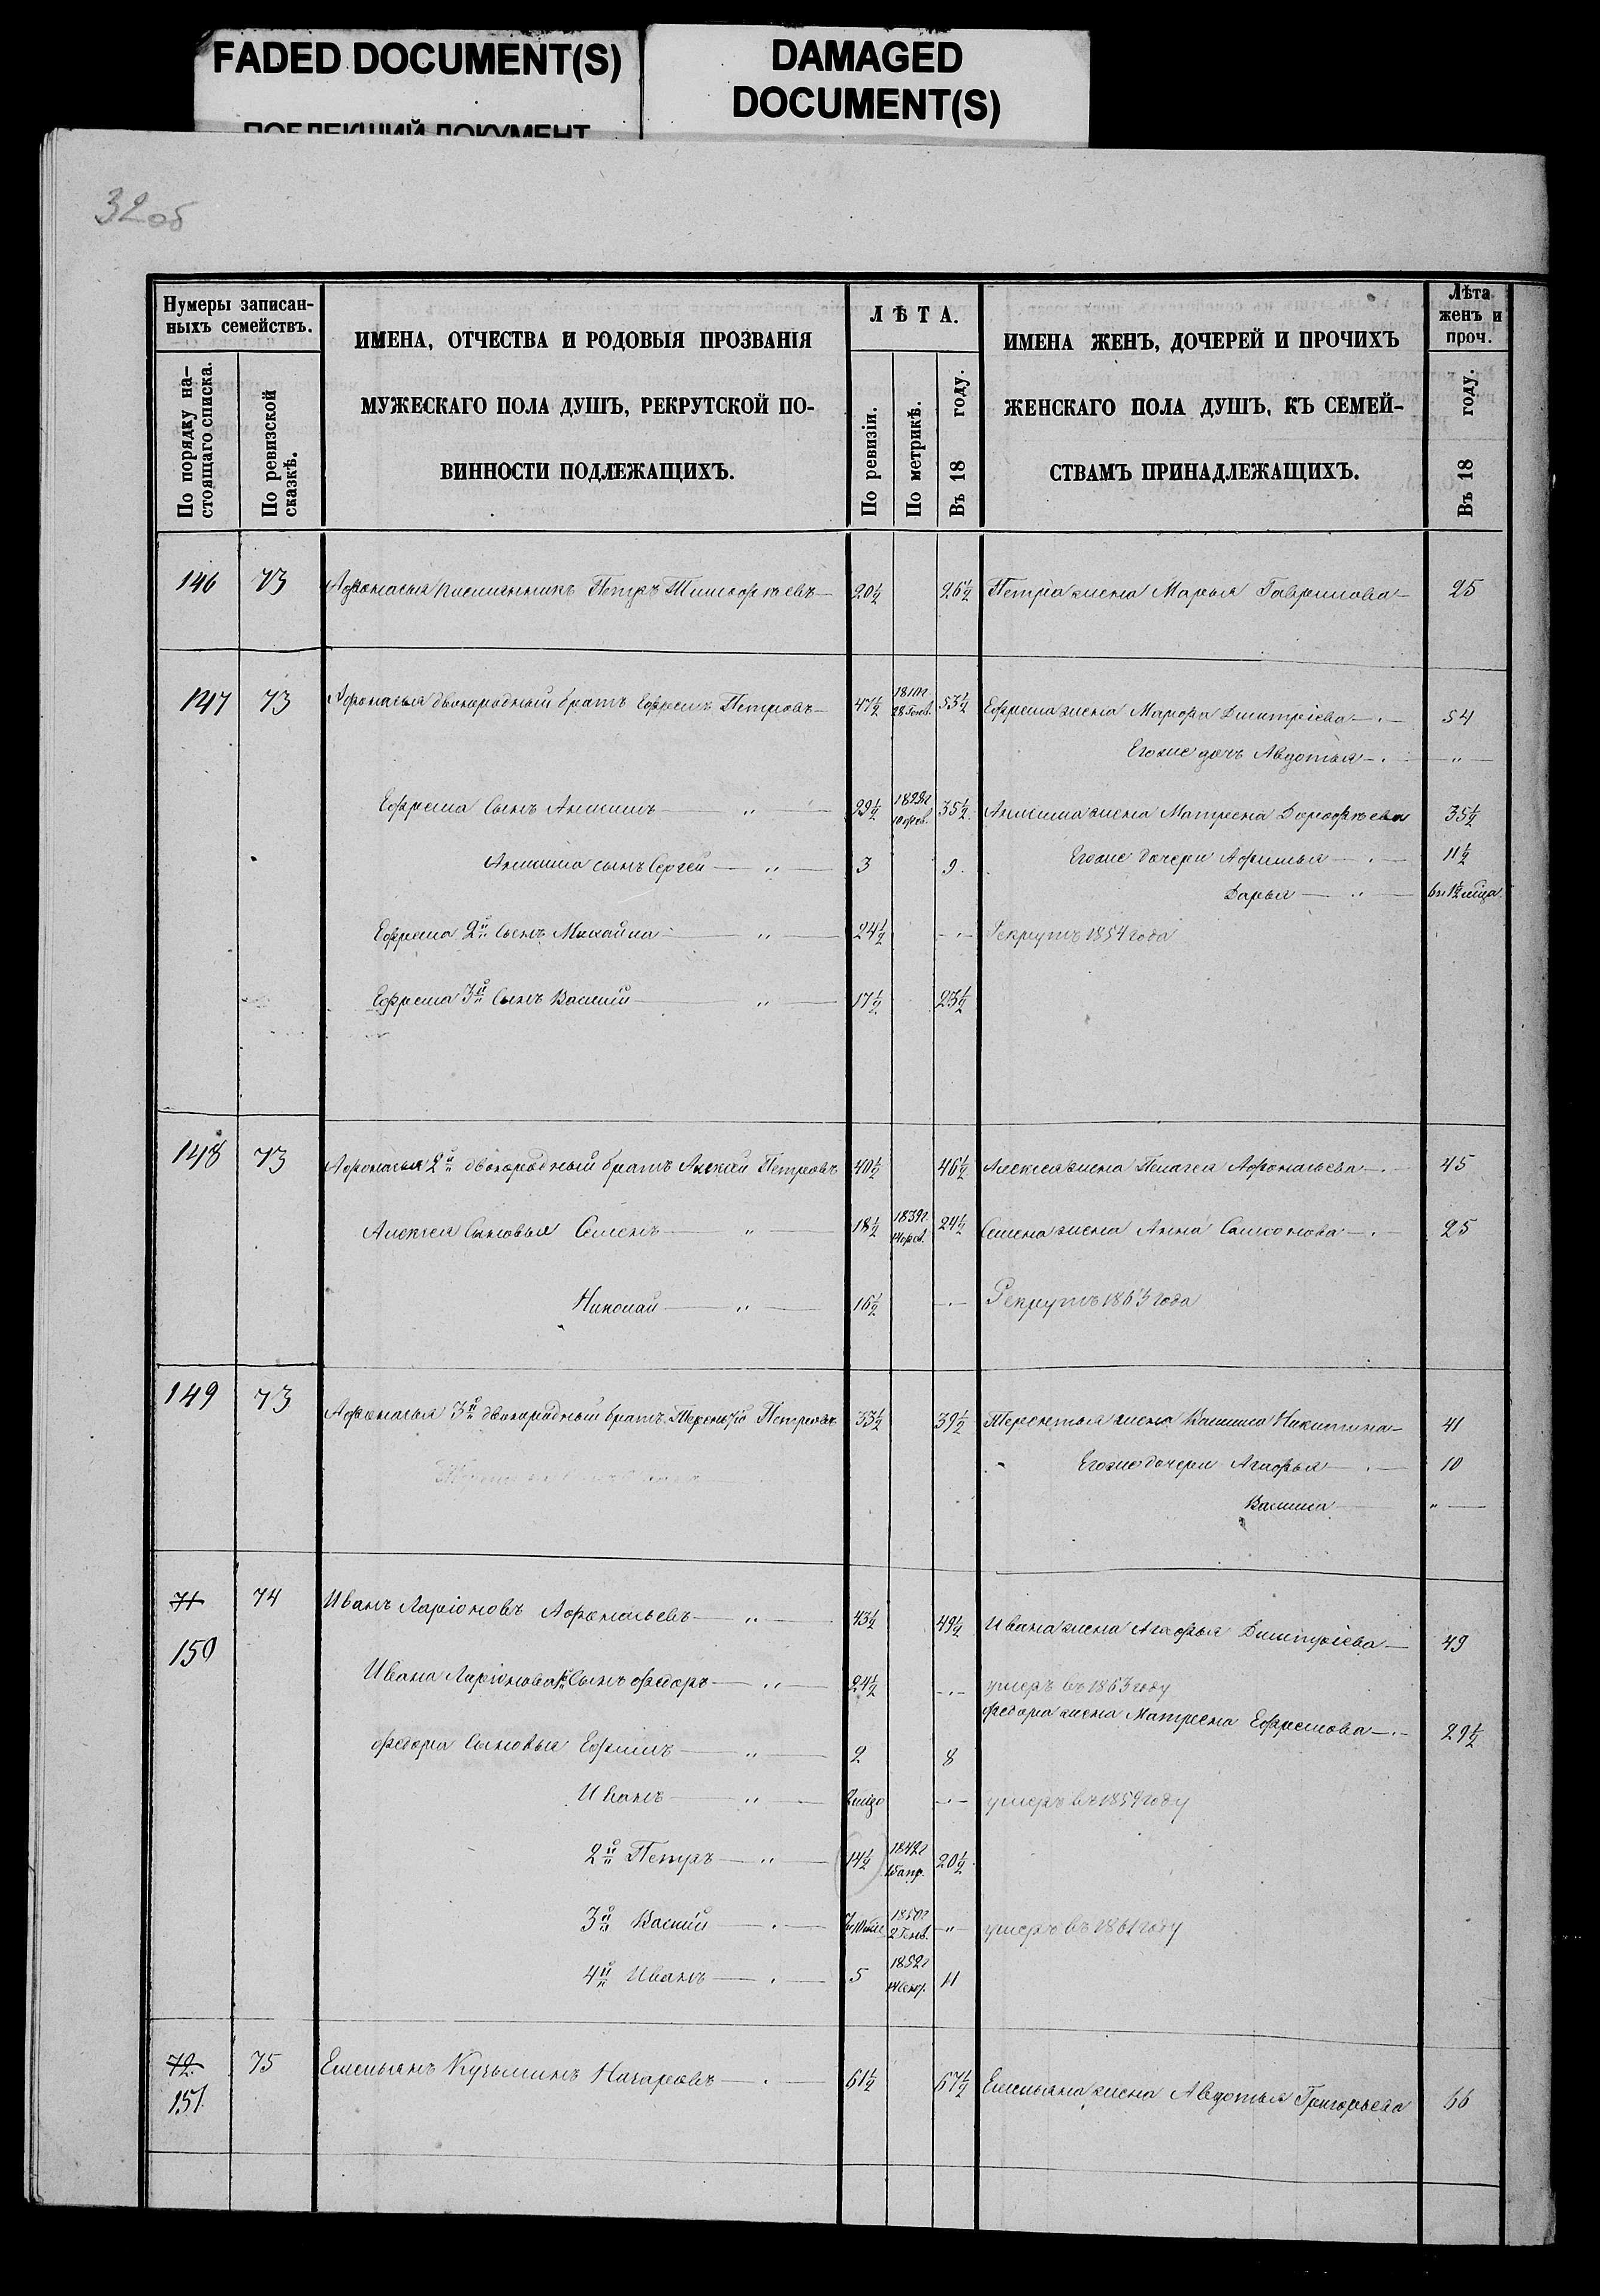 FADED DOCUMENT(S)
ПОБЛЕКШИЙ ДОКУМЕНТ
DAMAGED
DOCUMENT(S)
32 об
Нумеры записан-
ныхъ семействъ.
По порядку на-
стоящаго списка.
По ревизской
сказкѣ.
ИМЕНА, ОТЧЕСТВА И РОДОВЫЯ ПРОЗВАНІЯ
МУЖЕСКАГО ПОЛА ДУШЪ, РЕКРУТСКОЙ ПО-
ВИННОСТИ ПОДЛЕЖАЩИХЪ.
ЛѢТА.
По ревизіи.
По метрикѣ.
Въ 18 году.
ИМЕНА ЖЕНЪ, ДОЧЕРЕЙ И ПРОЧИХЪ
ЖЕНСКАГО ПОЛА ДУШЪ, КЪ СЕМЕЙ-
СТВАМЪ ПРИНАДЛЕЖАЩИХЪ.
Лѣта
женъ и
проч.
Въ 18 году.
146 73 Афонасья племянникъ Петръ Тимофѣевъ — 20½ 26½ Петра жена Марья Гаврилова — 25
147 73 Афонасья двоюродный братъ Ефремъ Петровъ — 47½ 28 Генв. 53½ Ефрема жена Марфа Дмитріева — 54
Его же дочь Авдотья — "
Ефрема сынъ Анисимъ — " — 29½ 10 фев. 35½ Анисима жена Матрена Дорофѣева 35½
Анисима сынъ Сергей — " — 3 9 Его же дочери Афимья — 11½
Дарья — "
Ефрема 2й сынъ Михайла — " — 24½ — Рекрутъ 1854 года
Ефрема 3й сынъ Василій — " — 17½ 23½
148 73 Афонасья 2й двоюродный братъ Алексѣй Петровъ 40½ 46½ Алексея жена Пелагея Афонасьева — 45
Алексея сыновья Семенъ — " — 18½ 1839г 24½ Семена жена Анна Самсонова — 25
Николай — " — 16½ — Рекрутъ 1863 года
149 73 Афонасья 3й двоюродный братъ Терентій Петровъ 33½ 39½ Терентья жена Васлиса Никитина — 41
Его же дочери Агафья — 10
Васлиса — "
71 74 Иванъ Ларіоновъ Афонасьевъ — " — 43½ 49½ Ивана жена Агафья Дмитріева — 49
150
Ивана Ларіонова сынъ Федоръ — " — 24½ — умеръ въ 1863 году
Федора жена Матрена Ефремова — 29½
Федора сыновья Ефимъ — " — 2 8
Иванъ — " — — умеръ въ 1859 году
2й Петръ — " — 14½ 1842г 15 апр. 20½
3й Василій — 1850г 2 Генв. " умеръ въ 1861 году
4й Иванъ — 5 1852г 11
72 75 Емельянъ Кузьминъ Назаровъ — 61½ 67½ Емельяна жена Авдотья Григорьева 66
151